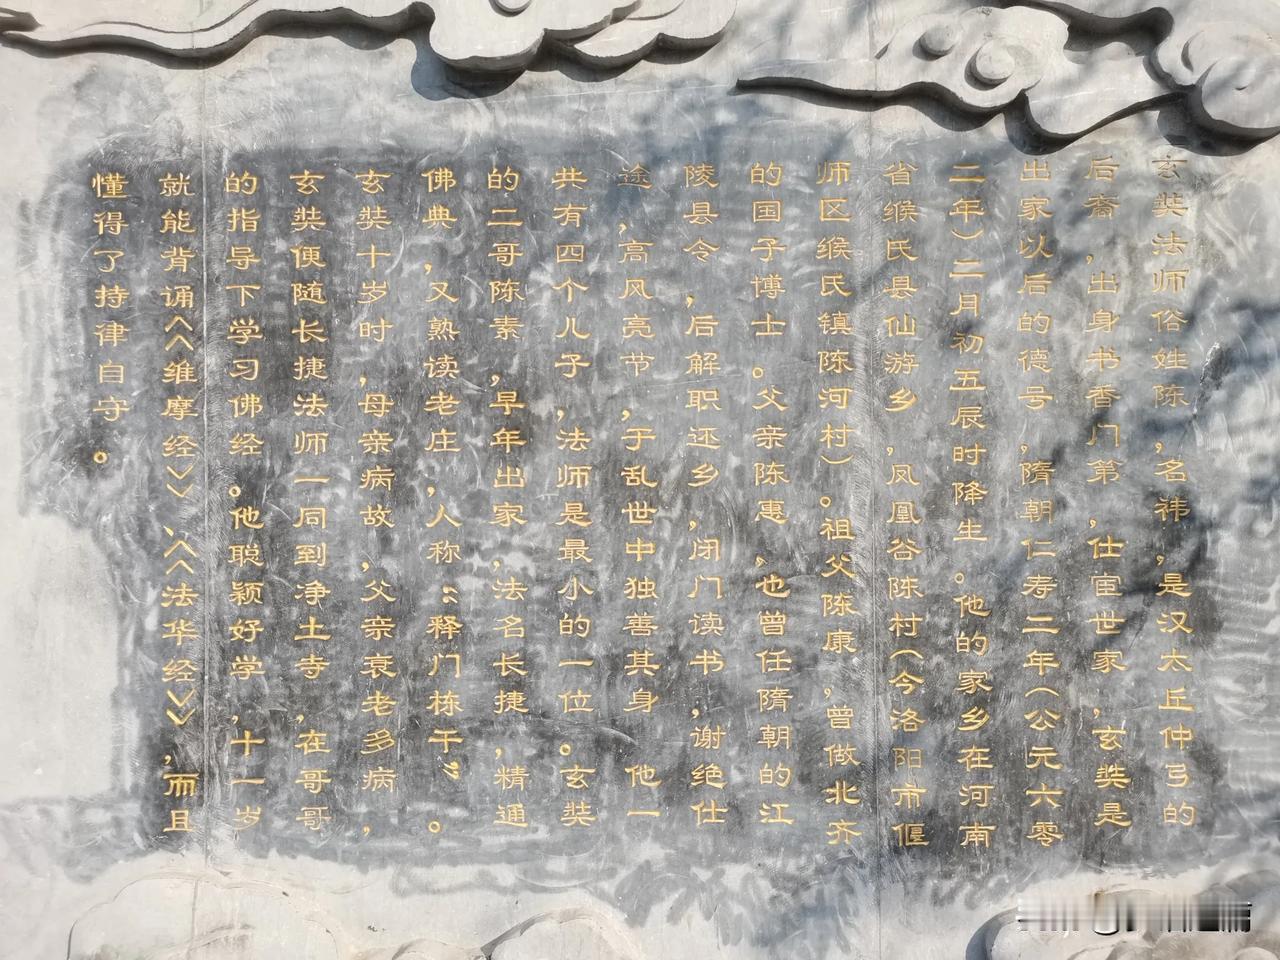 玄奘法师俗姓陈,名祎,是汉太丘仲弓的
后裔,出身书香门第,仕宦世家,玄奘是
出家以后的德号,隋朝仁寿二年(公元六零
二年)二月初五辰时降生。他的家乡在河南
省缑氏县仙游乡,凤凰谷陈村(今洛阳市偃
师区缑氏镇陈河村)。祖父陈康,曾做北齐
的国子博士。父亲陈惠,也曾任隋朝的江
陵县令,后解职还乡,闭门读书,谢绝仕
途,高风亮节,于乱世中独善其身 他一
共有四个儿子,法师是最小的一位。玄奘
的二哥陈素,早年出家,法名长捷,精通
佛典,又熟读老庄,人称“释门栋干”。
玄奘十岁时,母亲病故,父亲衰老多病,
玄奘便随长捷法师一同到净土寺,在哥哥
的指导下学习佛经。他聪颖好学,十一岁
就能背诵《维摩经》、《法华经》,而且
懂得了持律自守。